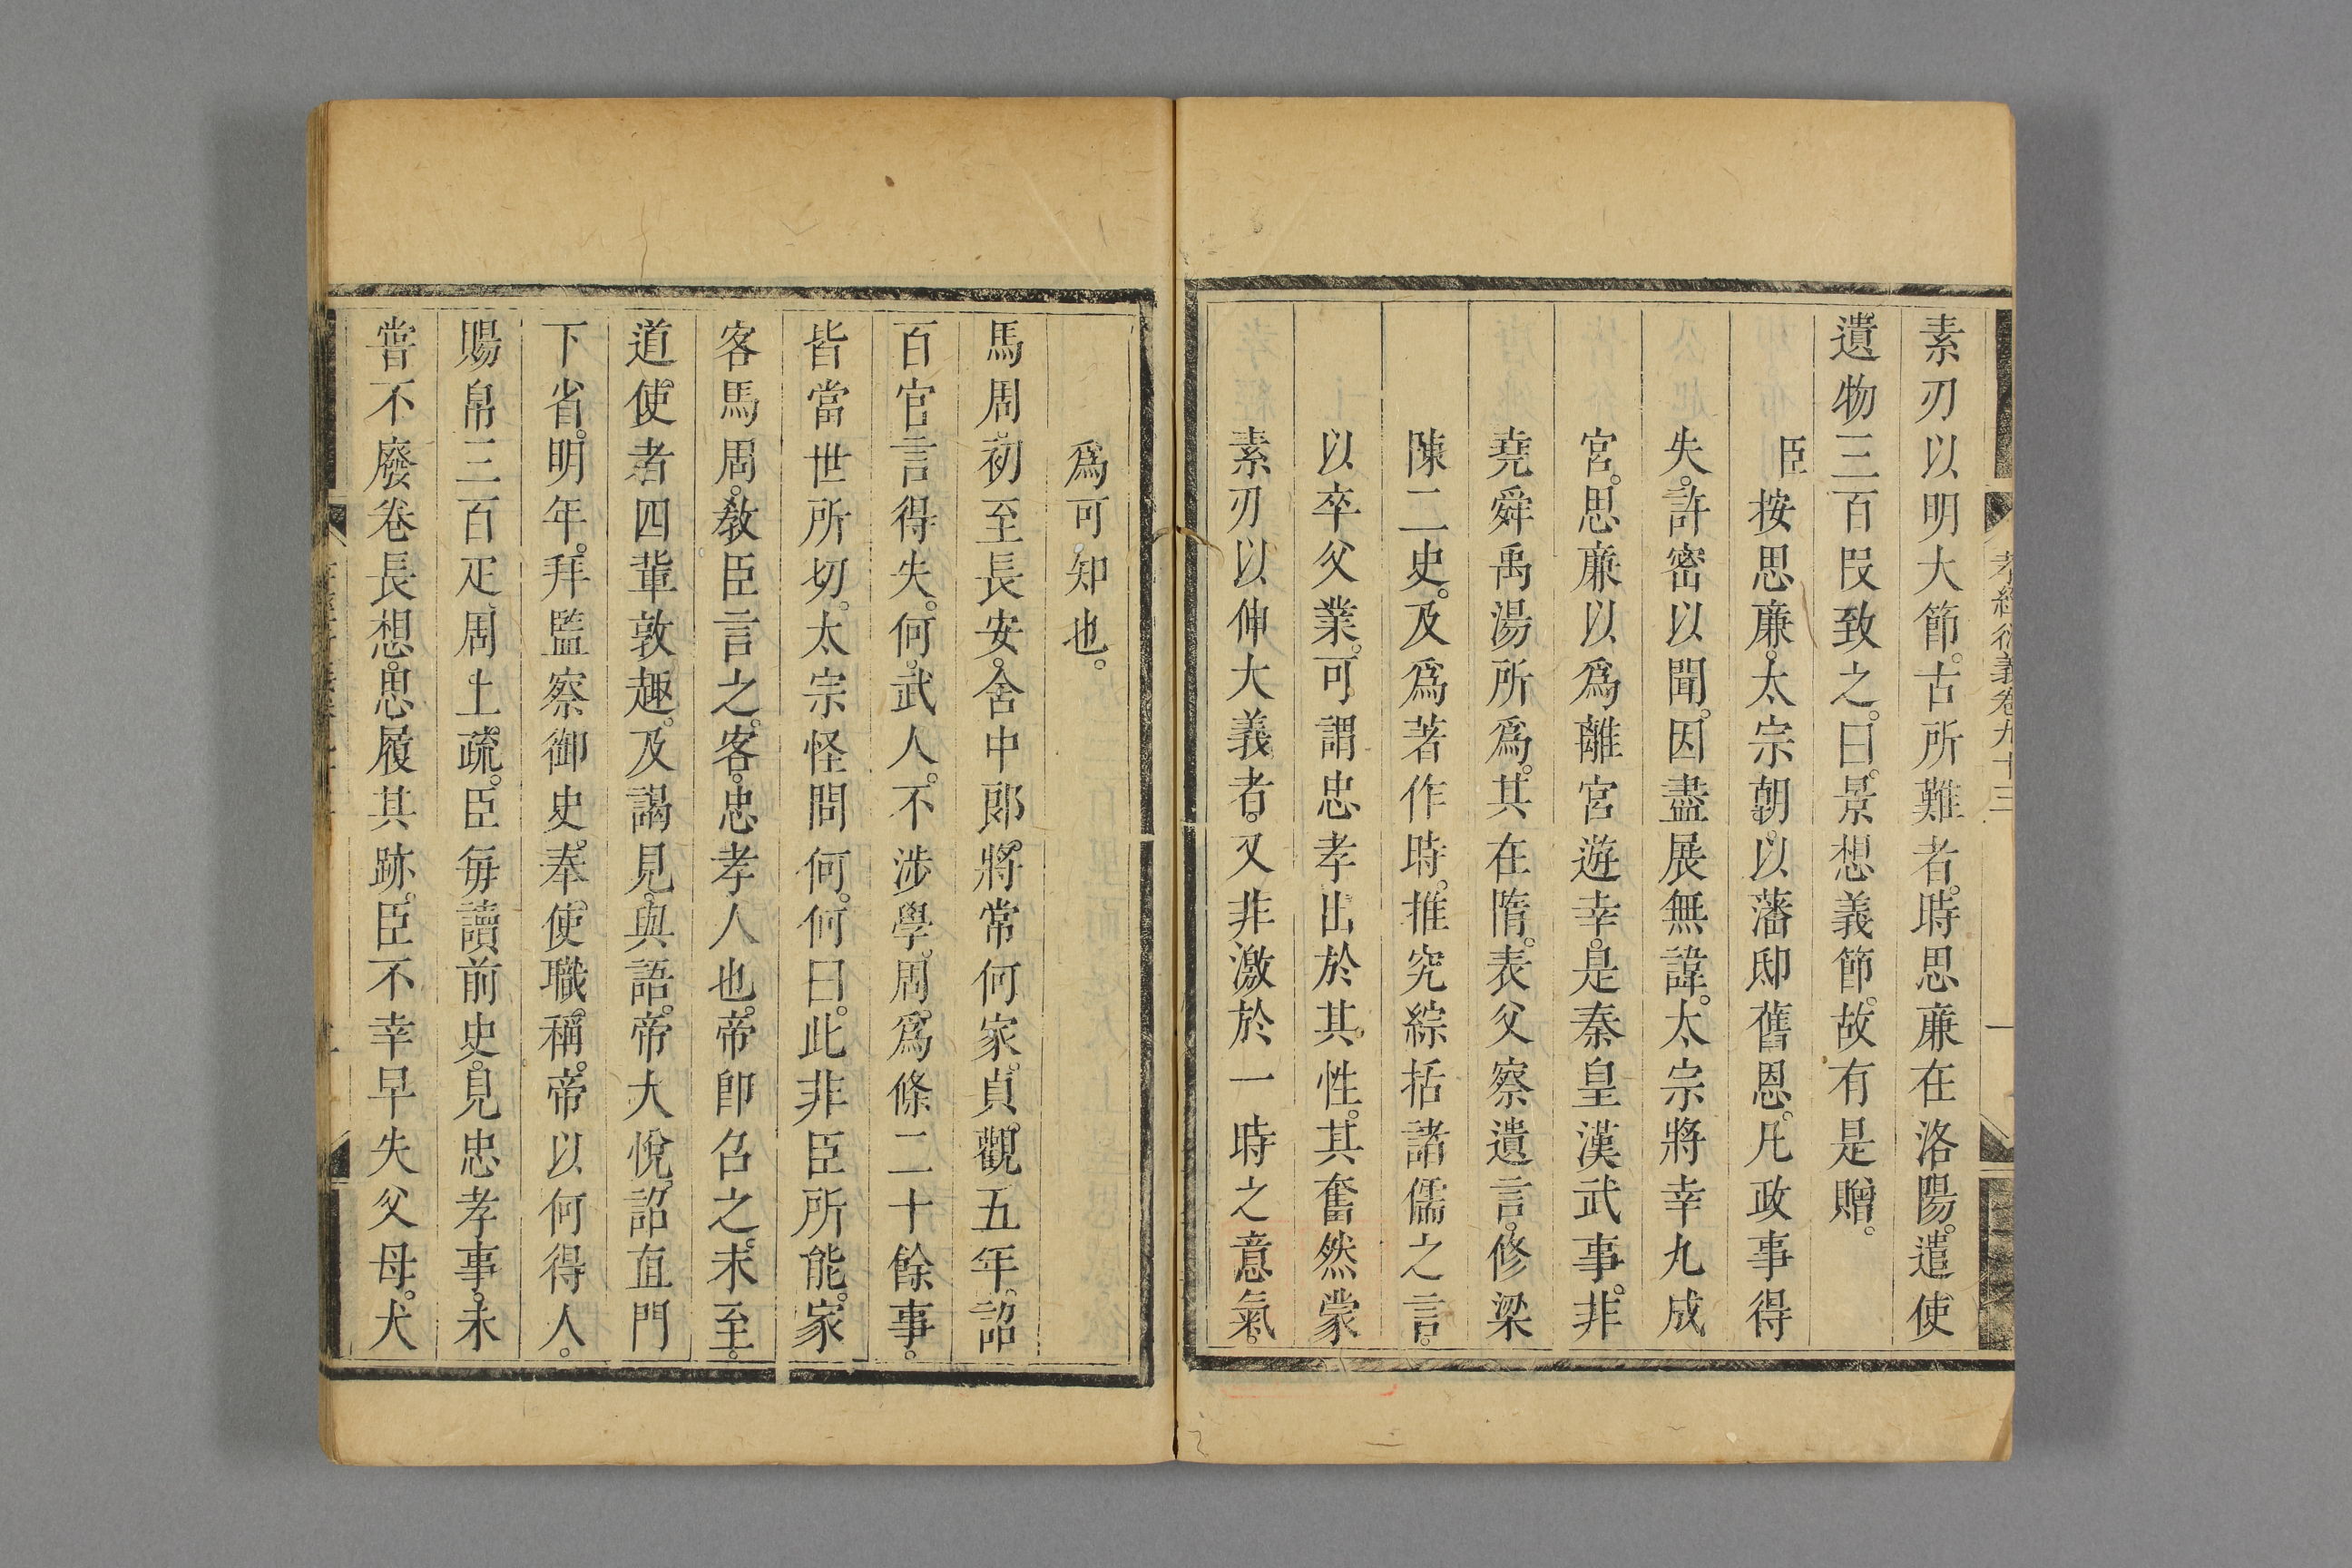 孝經衍義卷九十三
一
素刃以明大節。古所難者。時思廉在洛陽。遣使
遺物三百段致之。曰。景想義節。故有是贈。
臣按思廉。太宗朝。以藩邸舊恩。凡政事得
失。許密以聞。因盡展無諱。太宗將幸九成
宮。思廉以爲離宮遊幸。是秦皇漢武事。非
堯舜禹湯所爲。其在隋。表父察遺言。修梁
陳二史。及爲著作時。推究綜括諸儒之言。
以卒父業。可謂忠孝出於其性。其奮然蒙
素刃以伸大義者。又非激於一時之意氣。
爲可知也。
馬周。初至長安。舍中郎。將常何家。貞。觀五年。詔
百官言得失。何。武人。不涉學。周。爲條二十餘事。
皆當世所切。太宗怪問何。何曰。此非臣所能。家
客馬周。敎臣言之。客。忠孝人也。帝卽召之。未至。
道使者四輩敦趣。及謁見。與語。帝大悅。詔直門
下省。明年。拜監察御史。奉。使職。稱。帝以何得人。
賜帛三百疋。周上疏。臣每讀前史。見忠孝事。未
嘗不廢卷長想。思履其跡。臣不幸早失父母。犬